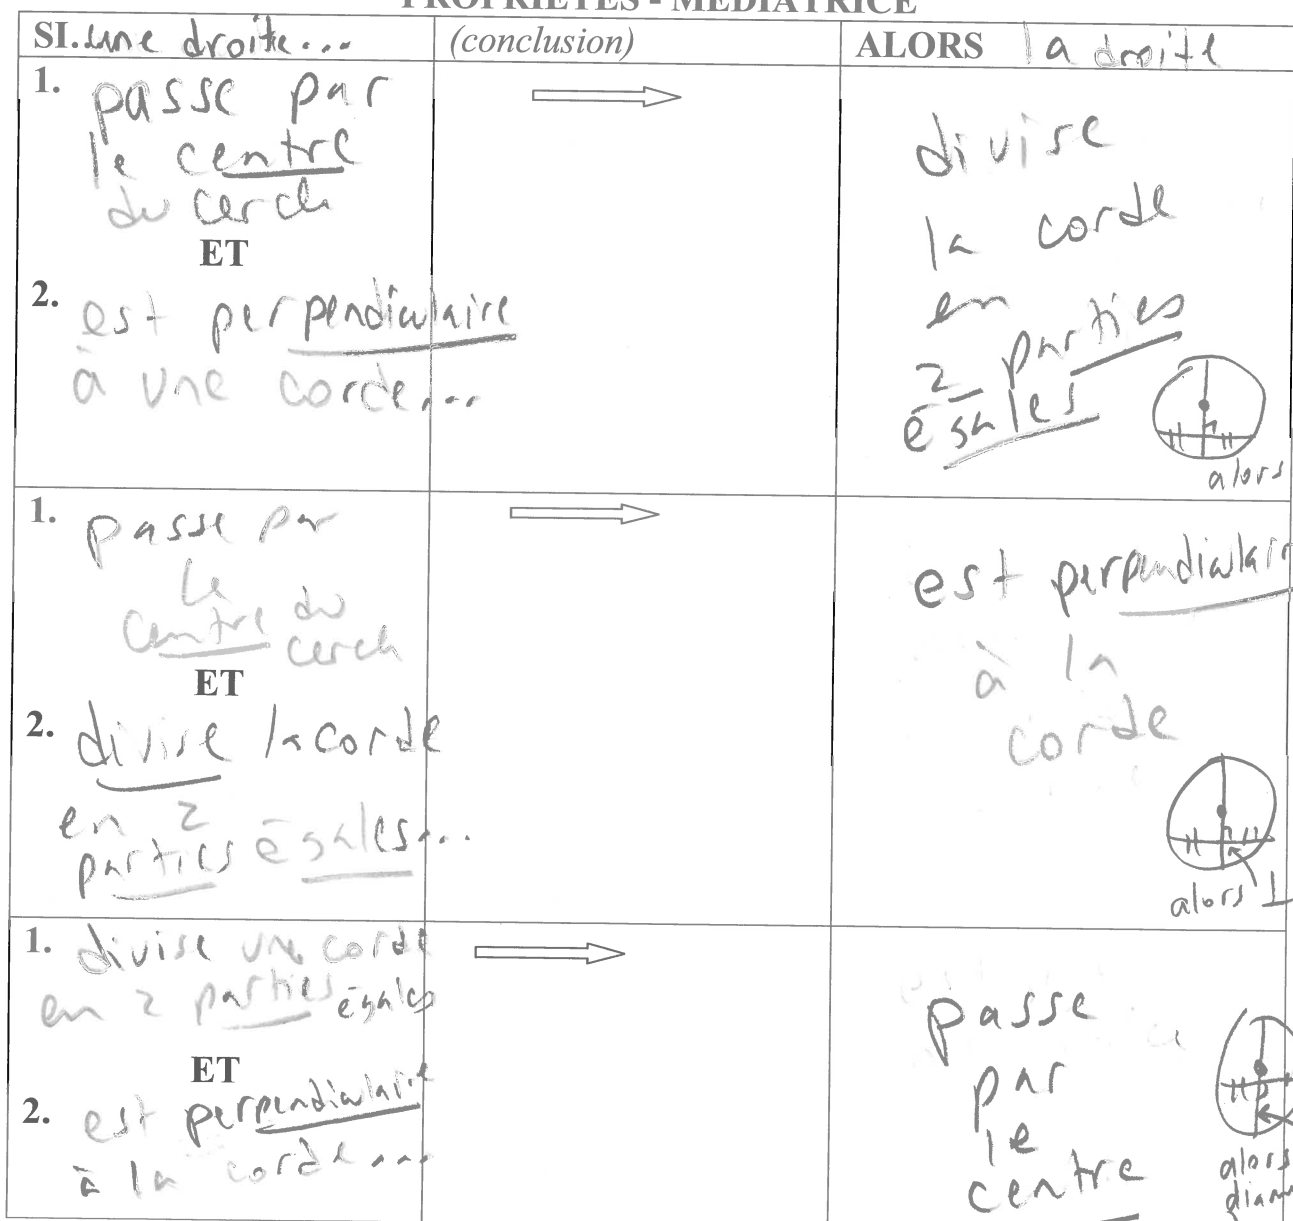 PROPRIÉTÉS - MÉDIATRICE
SI..une droite...
(conclusion)
ALORS la droite
1. passe par
le centre
du cercle
ET
2. est perpendiculaire
à une corde...
divise
la corde
en
2 parties
égales
alors
1. passe par
le
centre du
cercle
ET
2. divise la corde
en 2
parties égales...
est perpendiculair
à la
corde
alors ⊥
1. divise une corde
en 2 parties égales
ET
2. est perpendiculaire
à la corde...
passe
par
le
centre
alors
diam